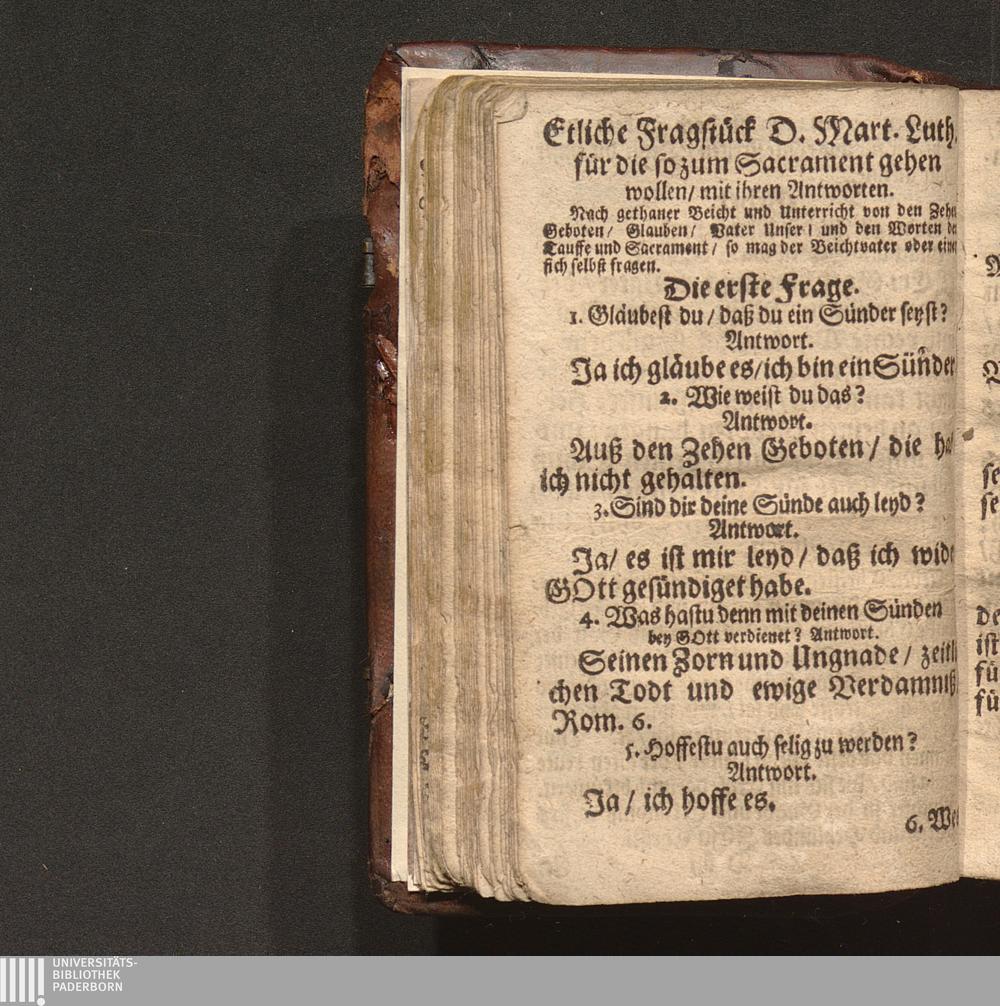 Etliche Fragstück D. Mart. Luth.
für die so zum Sacrament gehen
wollen/ mit ihren Antworten.
Nach gethaner Beicht und Unterricht von den Zehe
Geboten/ Glauben/ Vater Unser/ und den Worten de
Tauffe und Sacrament/ so mag der Beichtvater oder eine
sich selbst fragen.
Die erste Frage.
1. Gläubest du/ daß du ein Sünder seyst?
Antwort.
Ja ich gläube es/ ich bin ein Sünder
2. Wie weist du das?
Antwort.
Auß den Zehen Geboten/ die ha
ich nicht gehalten.
3. Sind dir deine Sünde auch leyd?
Antwort.
Ja/ es ist mir leyd/ daß ich wide
GOtt gesündiget habe.
4. Was hastu denn mit deinen Sünden
bey GOtt verdienet? Antwort.
Seinen Zorn und Ungnade/ zeitli
chen Todt und ewige Verdamniß.
Rom. 6.
5. Hoffestu auch selig zu werden?
Antwort.
Ja/ ich hoffe es.
6. We
se
se
de
ist
fü
fü
UNIVERSITÄTS-
BIBLIOTHEK
PADERBORN